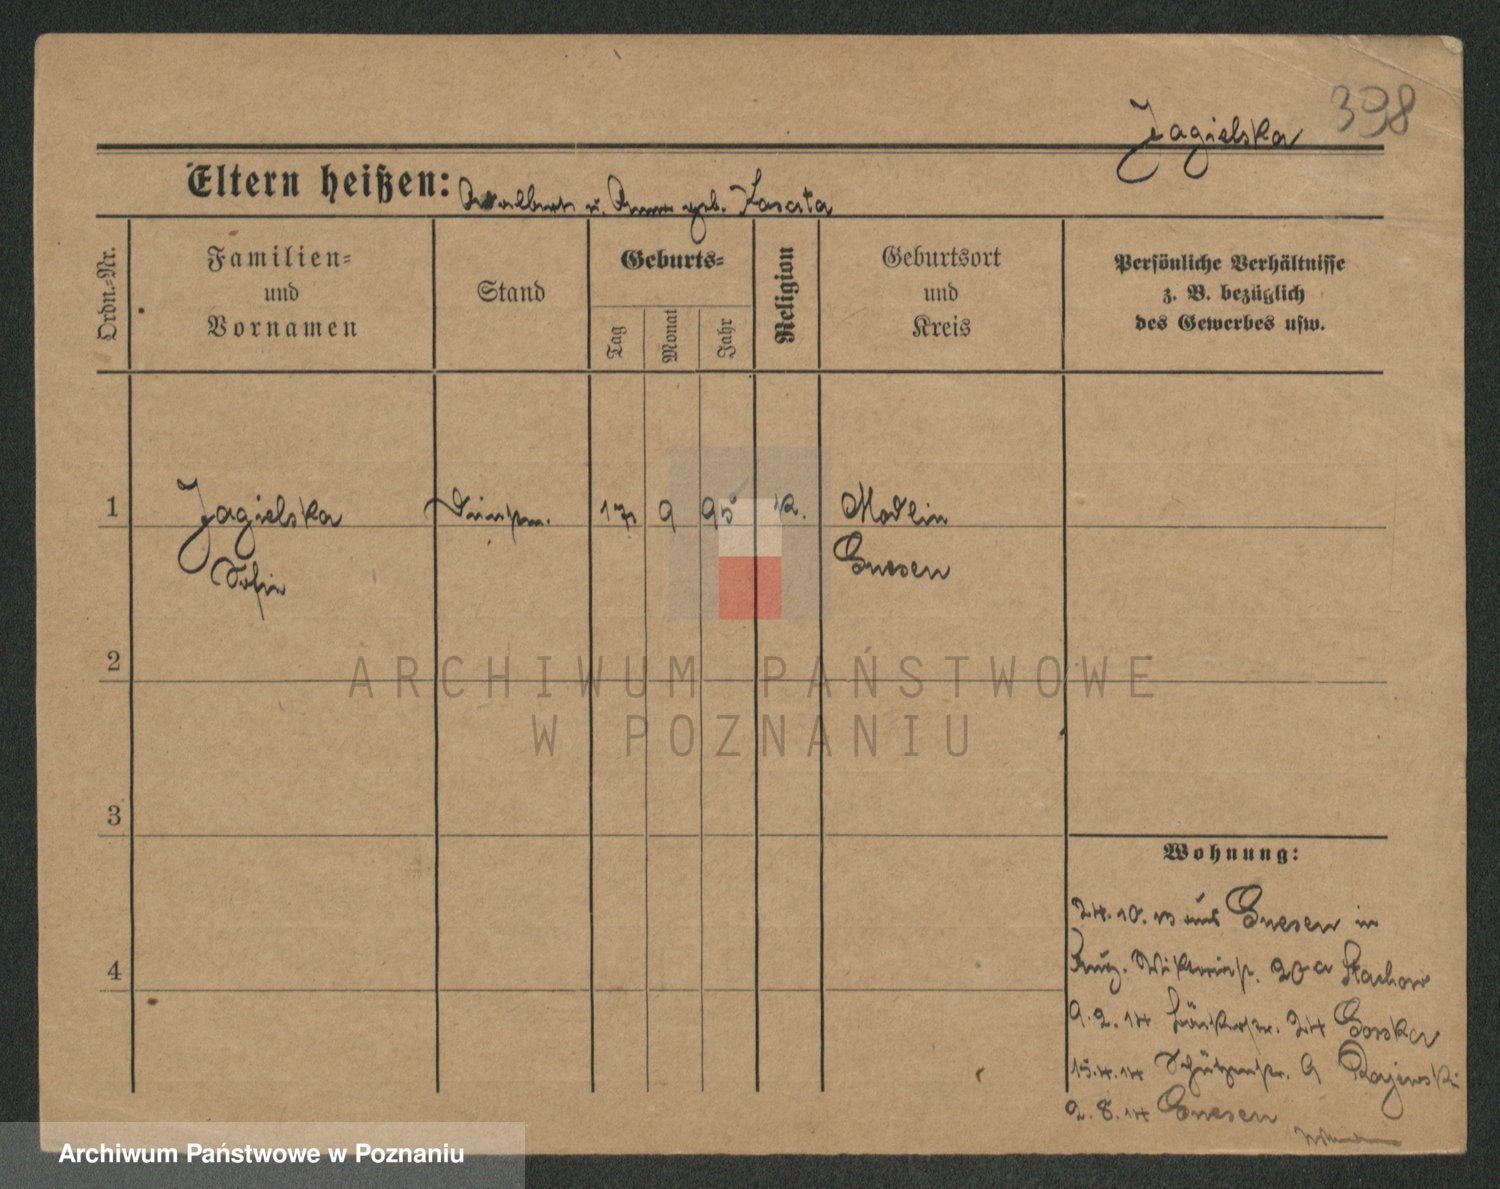 Jagielska 398
Eltern heißen: Adalbert u. Anna geb. Zasata
Ordn.-Nr.
Familien-
und
Vornamen
Stand
Geburts-
Tag
Monat
Jahr
Religion
Geburtsort
und
Kreis
Persönliche Verhältnisse
z. B. bezüglich
des Gewerbes usw.
1 Jagielska 17 9 95 K. Modlin
Sofie Gnesen
2
3
4
Wohnung:
24.10.13 aus Gnesen in
20a
9.2.14 24
15.4.14 Schützenstr. 9 Rajewski
2.8.14 Gnesen
ARCHIWUM PAŃSTWOWE
W POZNANIU
Archiwum Państwowe w Poznaniu